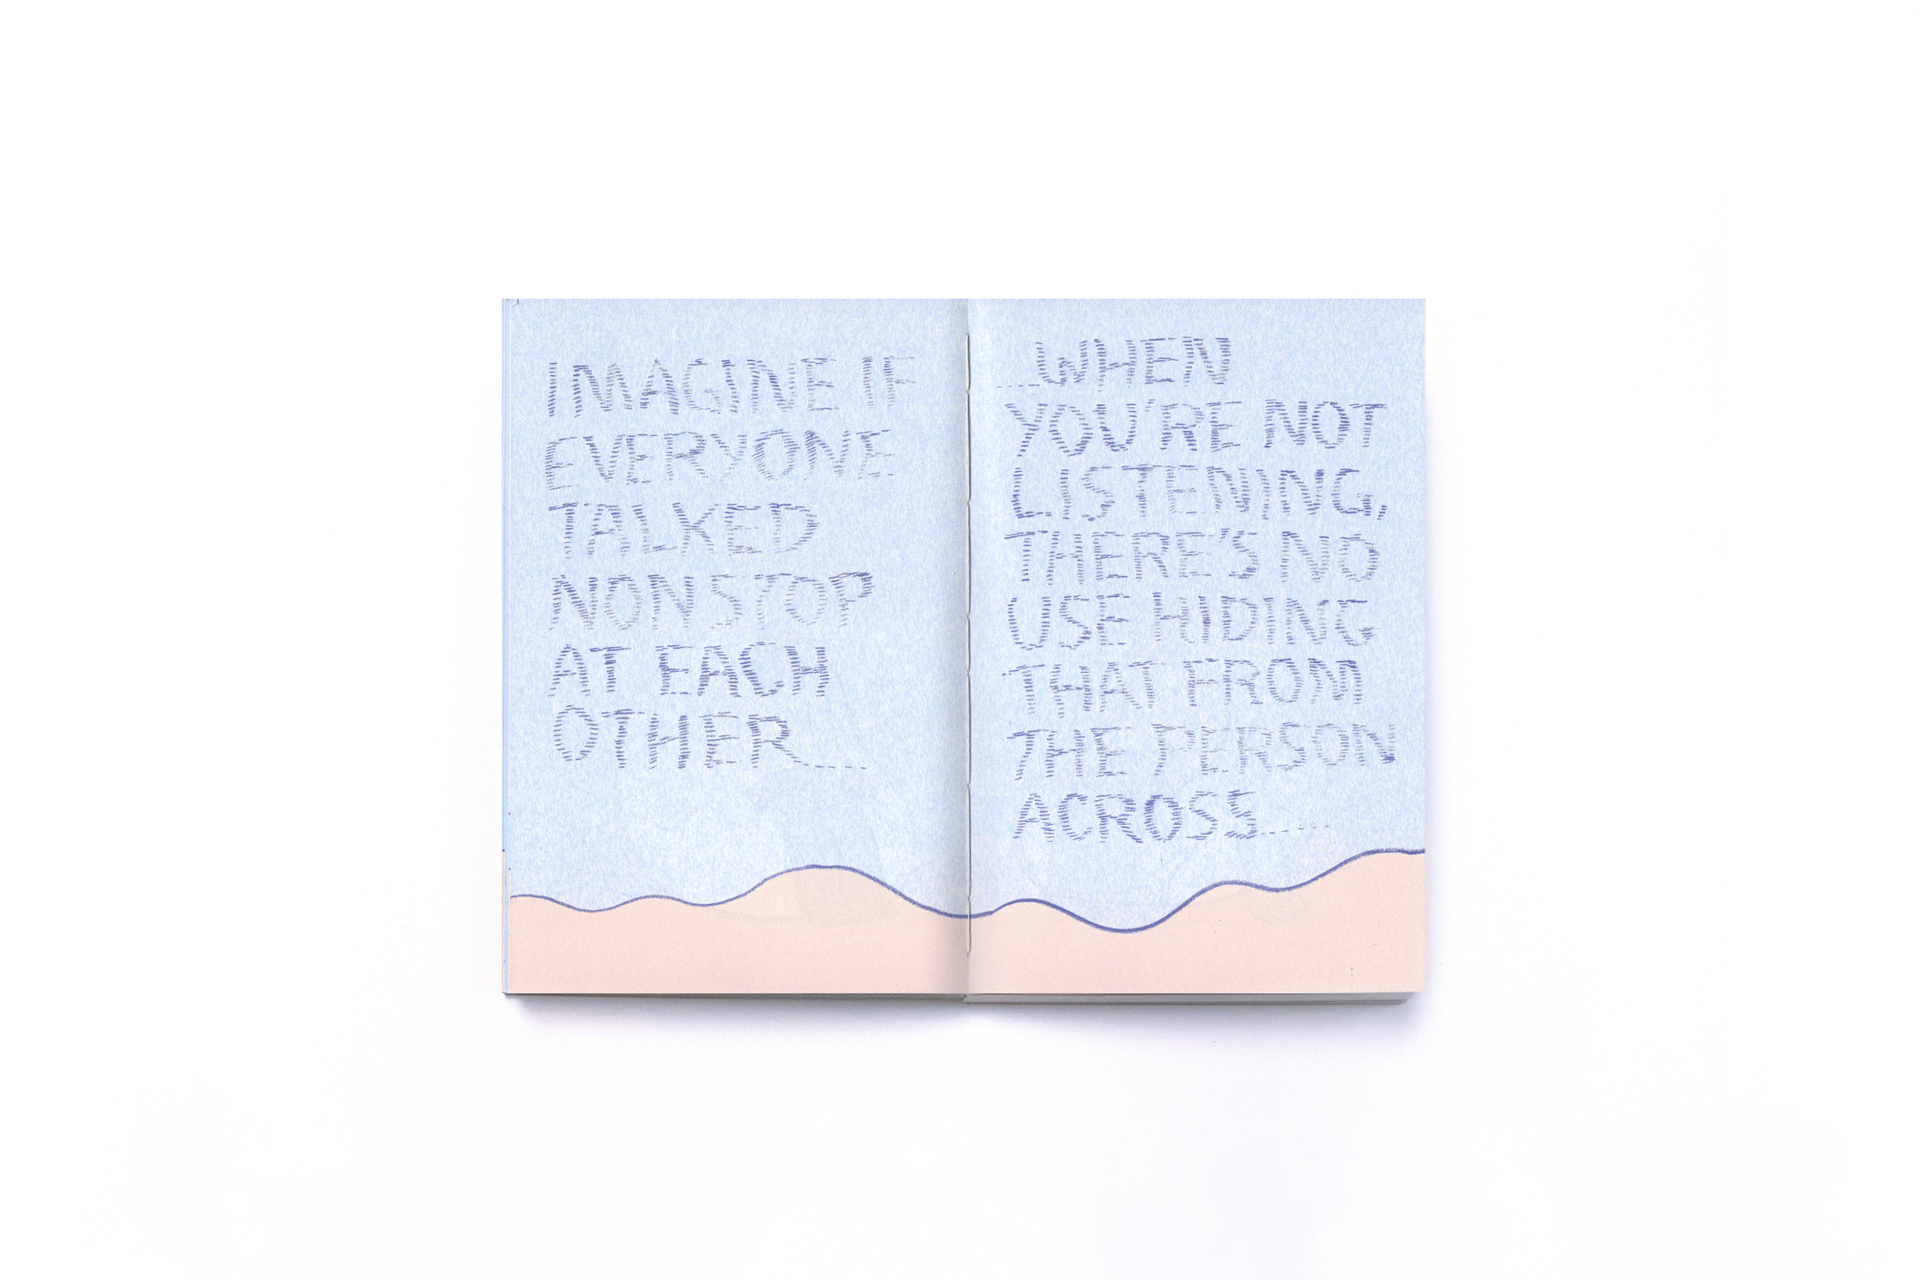 IMAGINE IF
EVERYONE
TALKED
NONSTOP
AT EACH
OTHER....
...WHEN
YOU'RE NOT
LISTENING,
THERE'S NO
USE HIDING
THAT FROM
THE PERSON
ACROSS.....